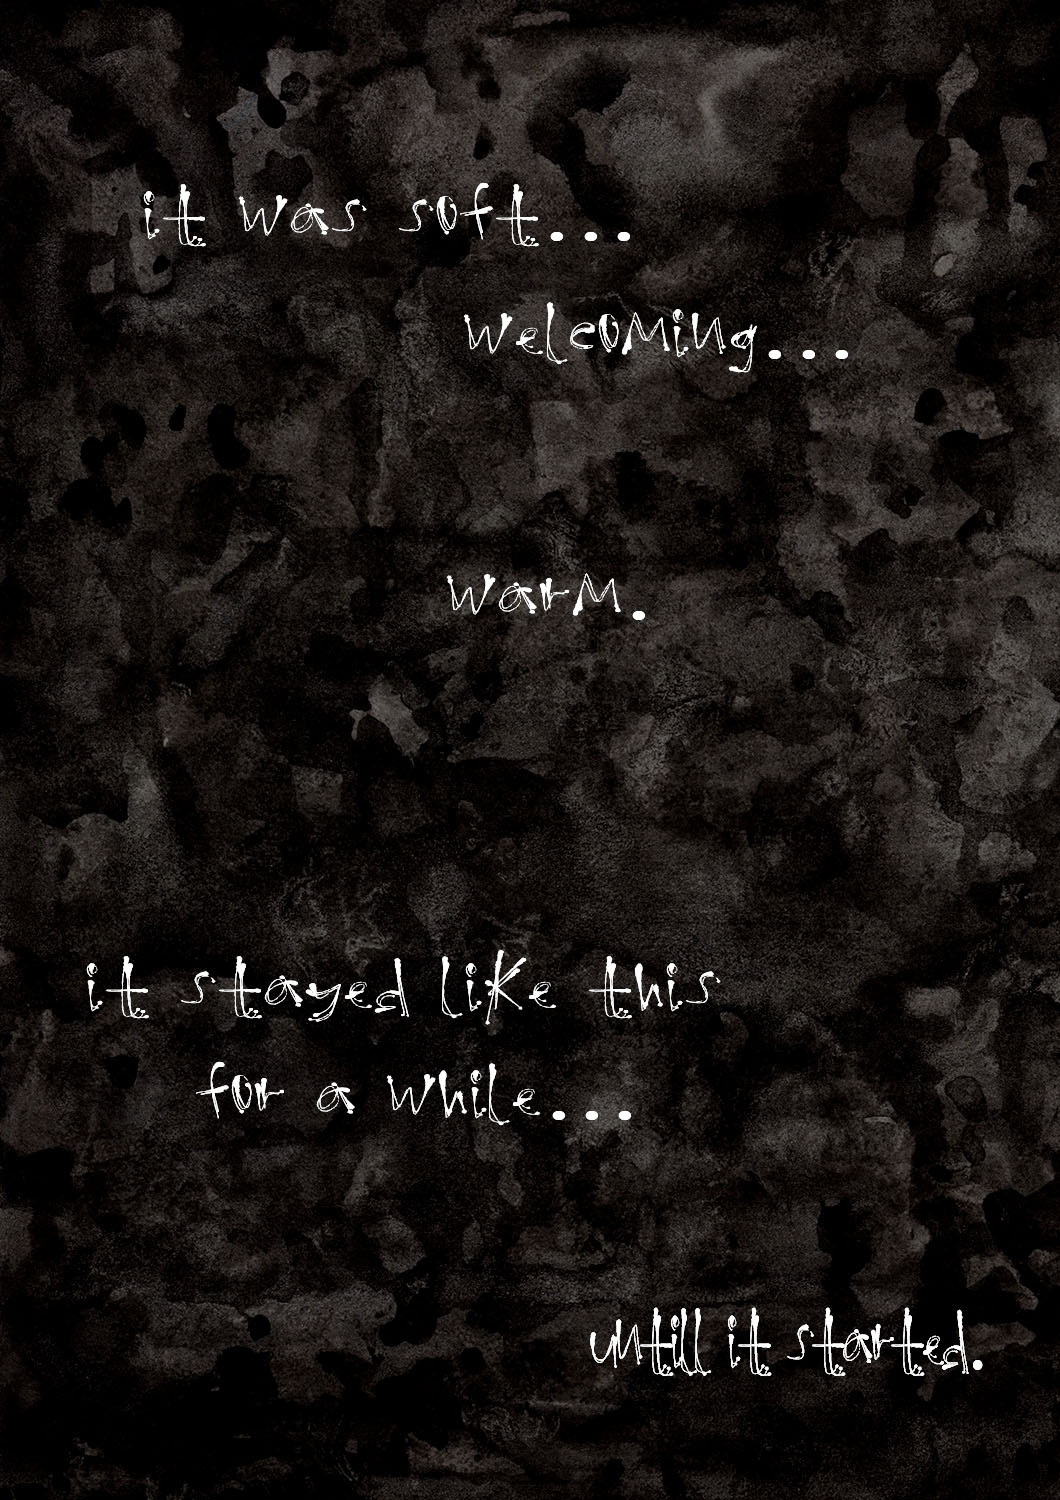 it was soft...
welcoming...
warm.
it stayed like this
for a while...
untill it started.